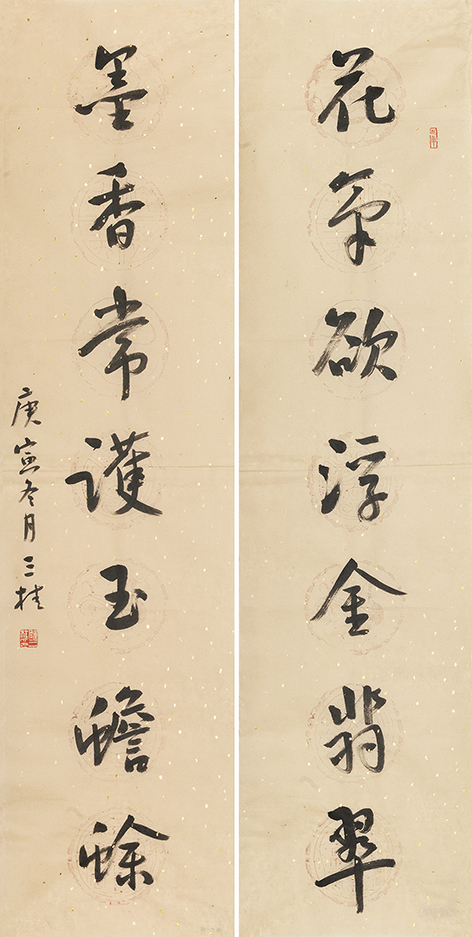 花氣欲浮金翡翠
墨香常護玉蟾蜍
庚寅冬月三桂